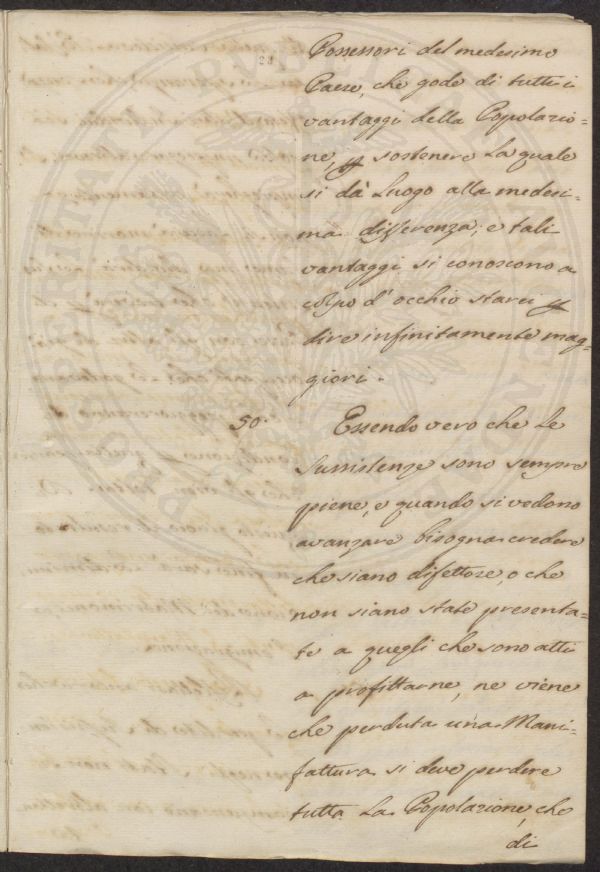 28
Possessori del medesimo
Paese, che gode di tutti i
vantaggi della Popolazio=
ne, sostenere La quale
si dà Luogo alla medesi=
ma differenza; e tali
vantaggi si conoscono a
colpo d'occhio starei
dire infinitamente mag=
giori.
50. Essendo vero che Le
Sussistenze sono sempre
piene, e quando si vedono
avanzare bisogna credere
che siano difettose, o che
non siano state presenta=
te a quegli che sono atti
a profittarne, ne viene
che perduta una Mani=
fattura si deve perdere
tutta La Popolazione, che
di